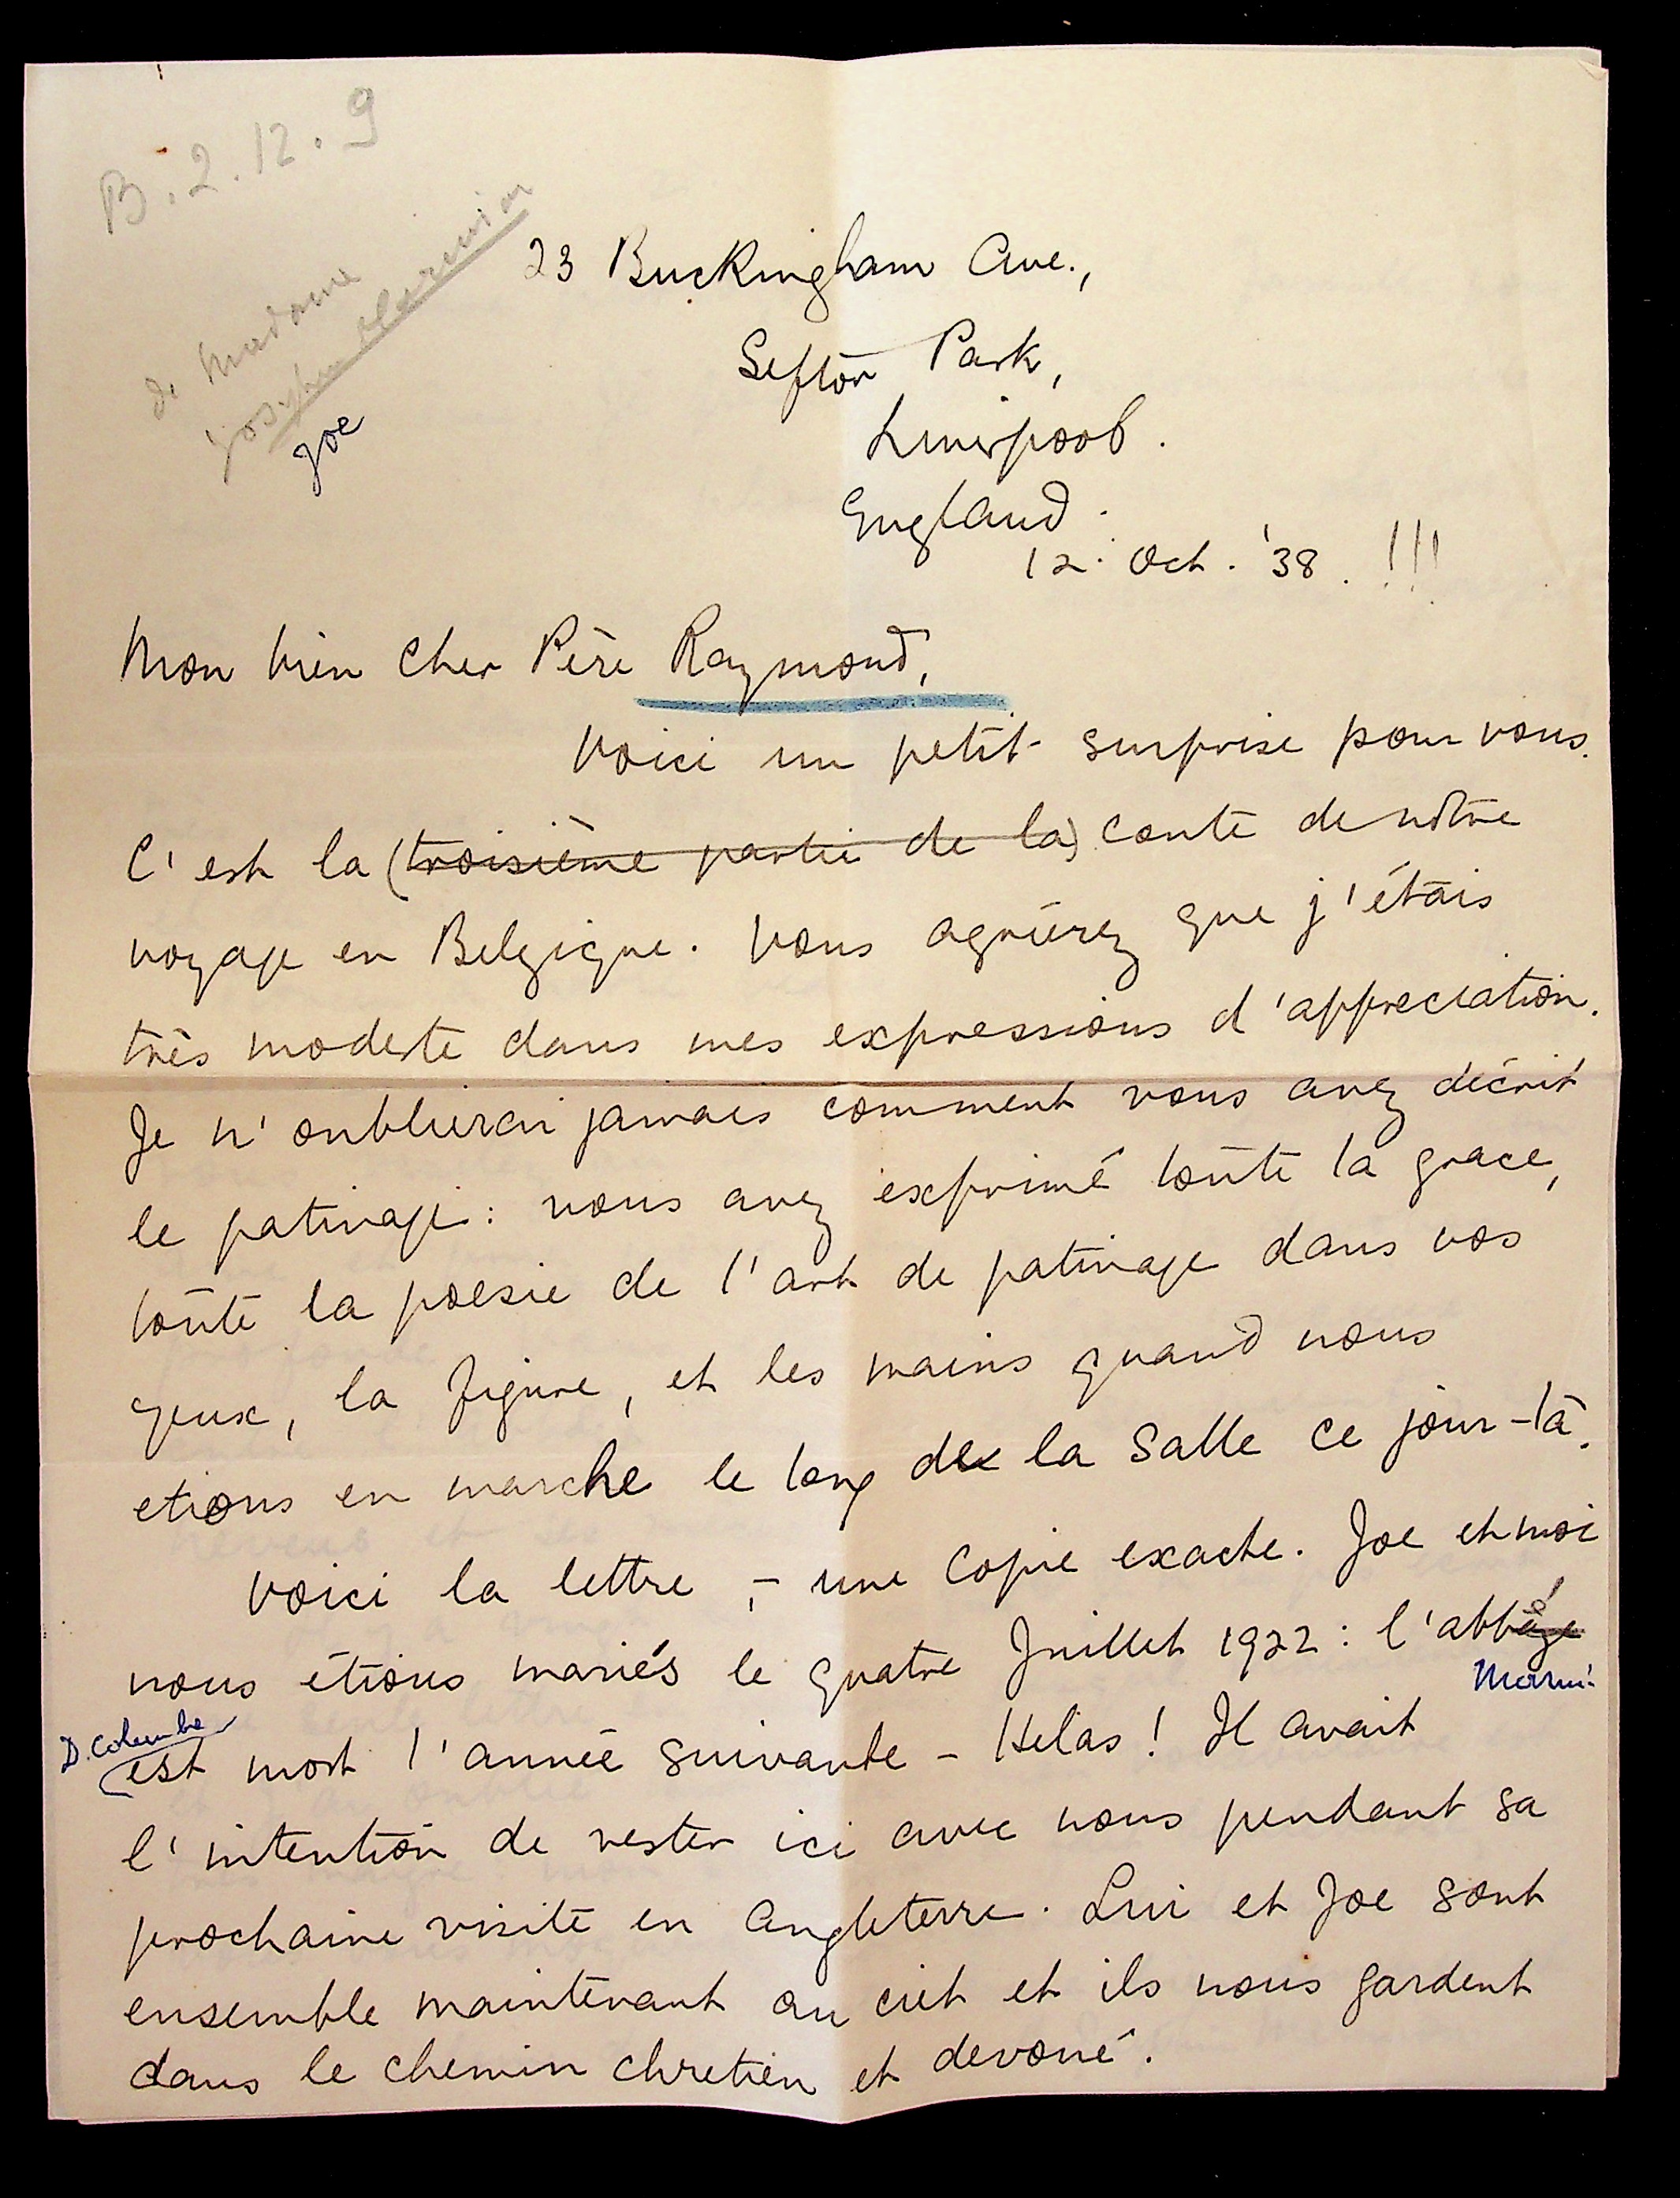 B. 2. 12. 9
de Madame
Joseph Marmion
Joe
23 Buckingham Ave.,
Sefton Park,
Liverpool.
England.
12. Oct. '38. !!!
Mon bien Cher Père Raymond,
Voici un petit surprise pour vous.
C'est la (troisième partie de la) conte de nôtre
voyage en Belgique. Vous agréerez que j'étais
très modeste dans mes expressions d'appreciation.
Je n'oublierai jamais comment vous avez décrit
le patinage: vous avez exprimé toute la grace,
toute la poesie de l'art de patinage dans vos
yeux, la figure, et les mains quand nous
etions en marche le long de la Salle ce jour-là.
Voici la lettre, – une Copie exacte. Joe et moi
nous étions mariés le quatre Juillet 1922: l'abbé
Marmi.
D. Columba
est mort l'année suivante – Helas! Il avait
l'intention de rester ici avec nous pendant sa
prochaine visite en Angleterre. Lui et Joe sont
ensemble maintenant au ciel et ils nous gardent
dans le chemin chretien et devoué.